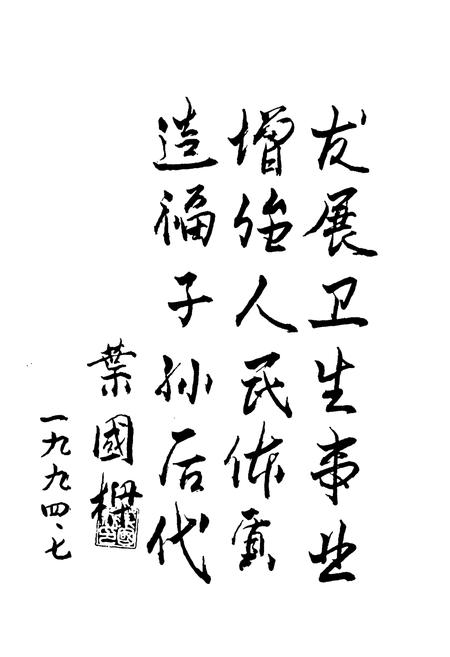 发展卫生事业
增强人民体质
造福子孙后代
葉國樑
一九九四、七